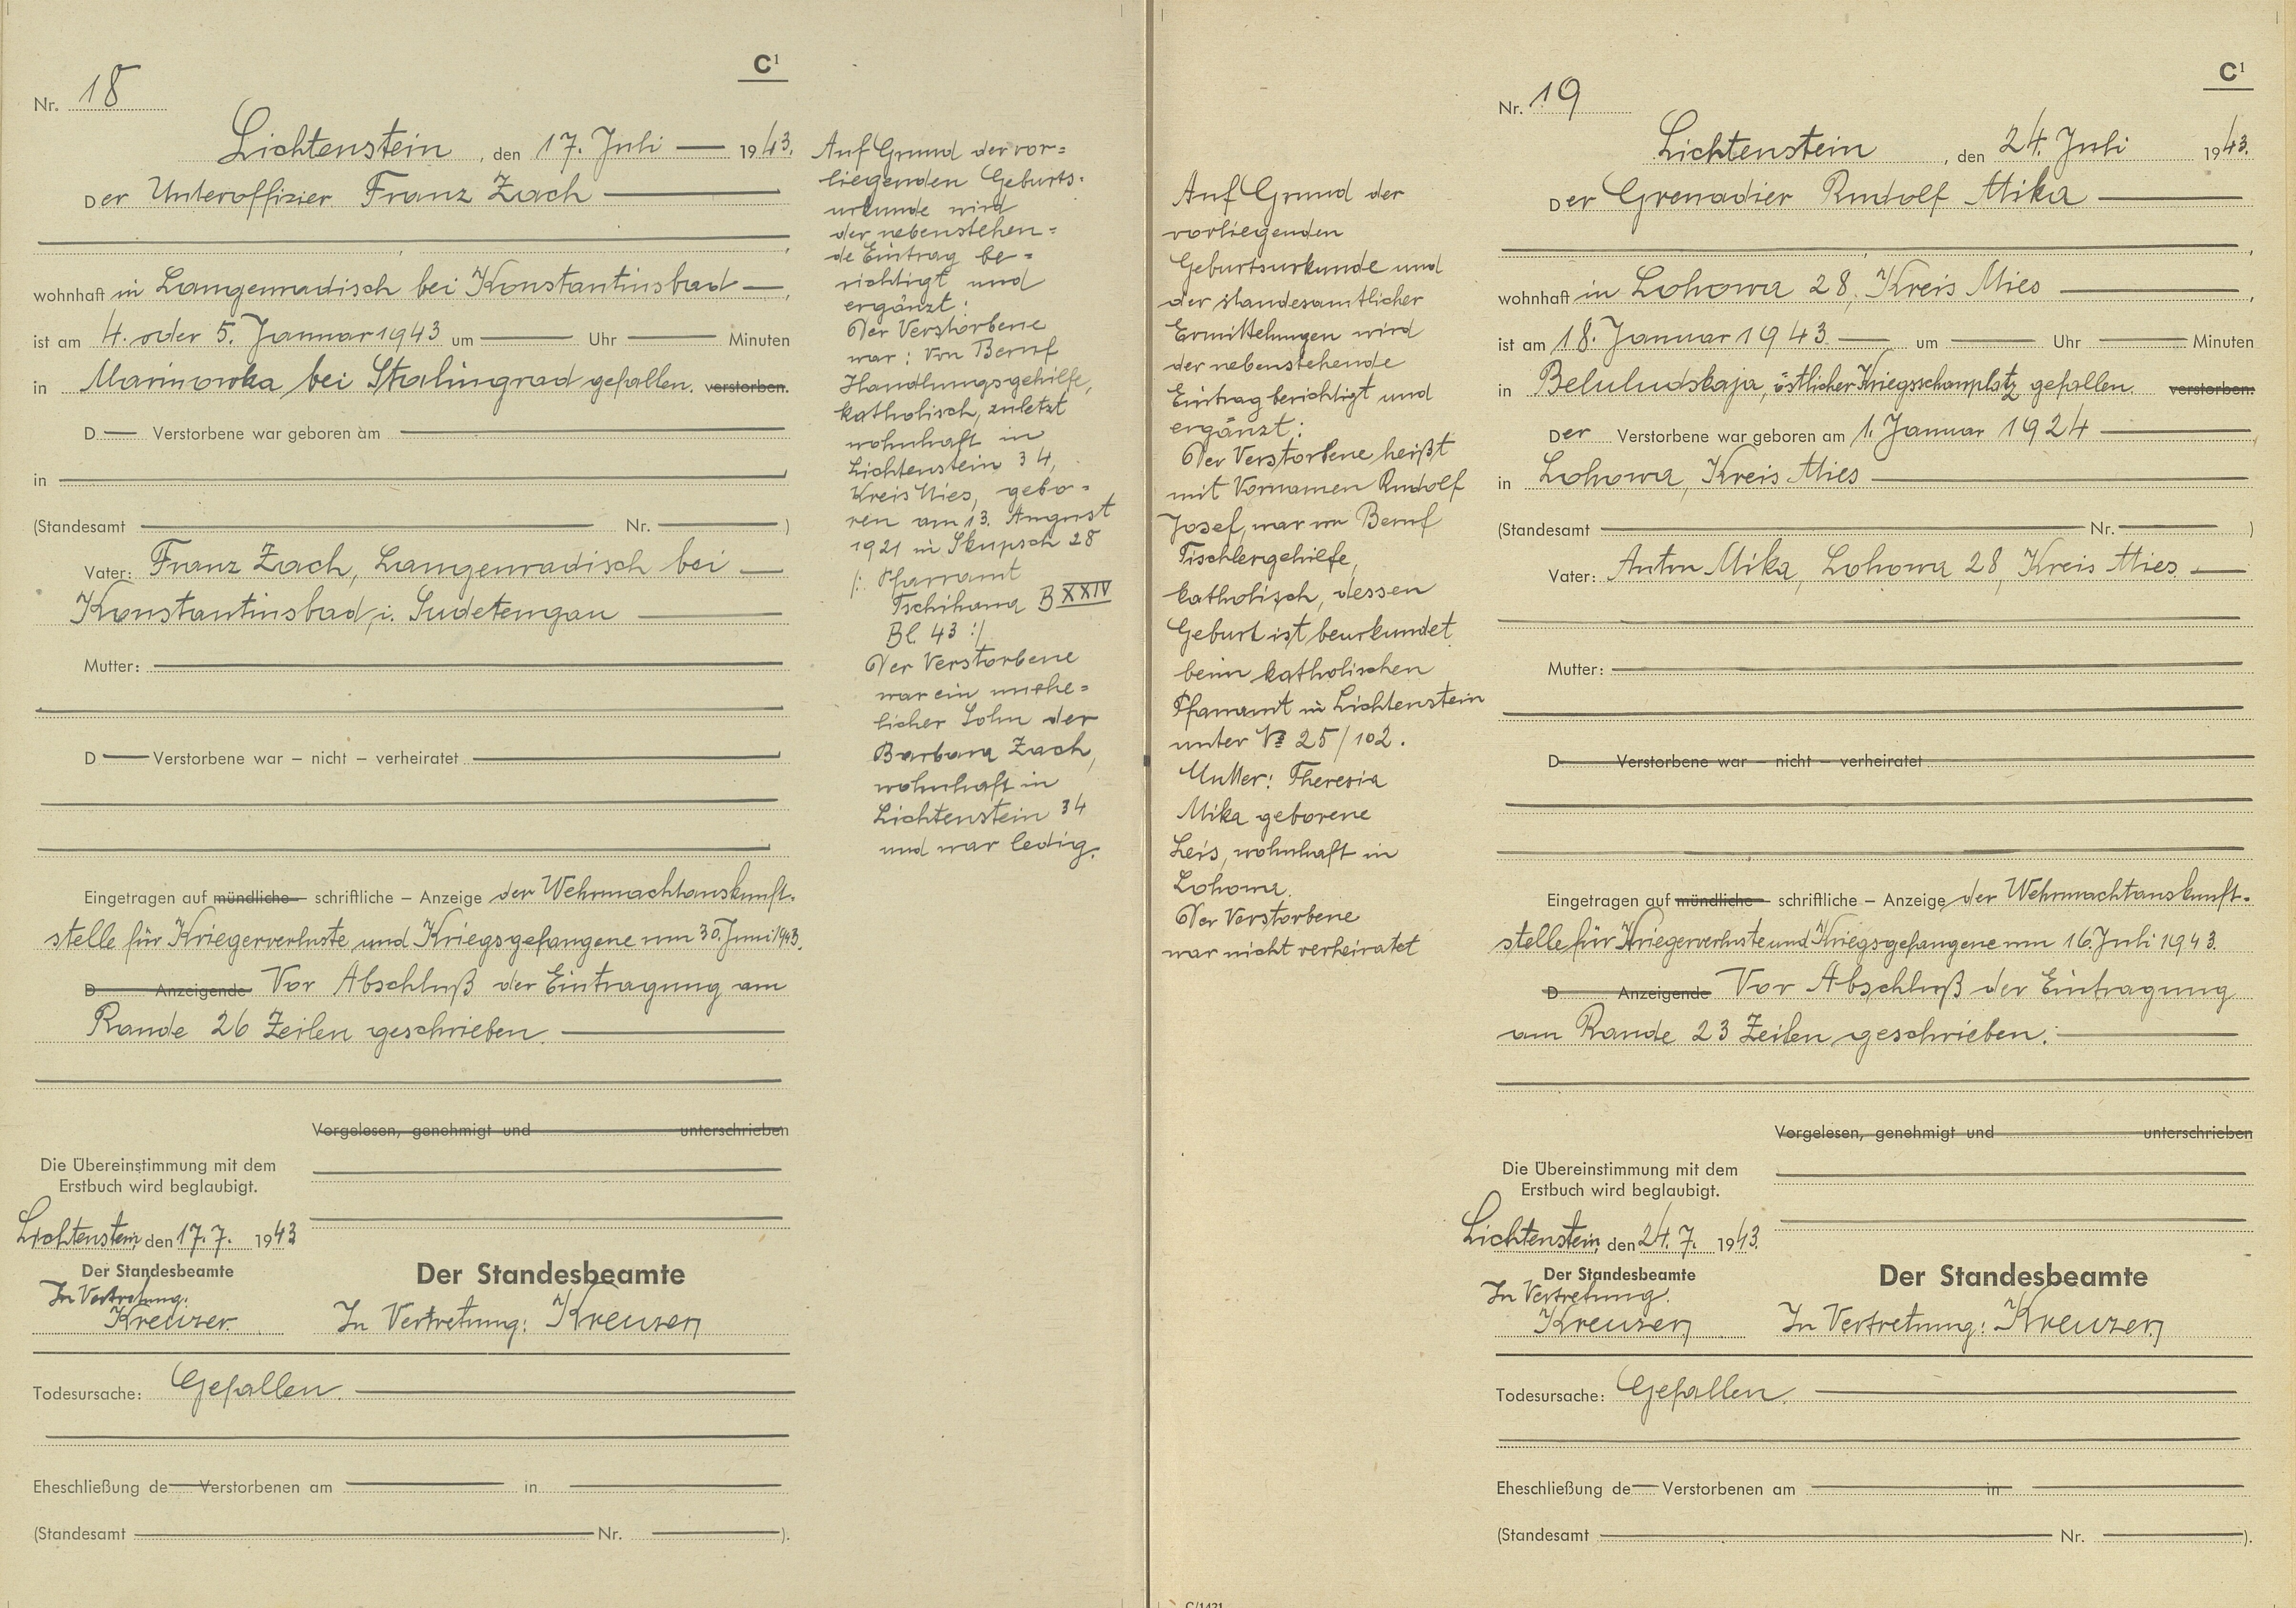 C¹
Nr. 18
Lichtenstein, den 17. Juli 1943.
Der Unteroffizier Franz Zach
wohnhaft in Langenradisch bei Konstantinsbad,
ist am 4. oder 5. Januar 1943 um Uhr Minuten
in Marinowka bei Stalingrad gefallen. verstorben.
D Verstorbene war geboren am
in
(Standesamt Nr. )
Vater: Franz Zach, Langenradisch bei
Konstantinsbad, i. Sudetengau
Mutter:
D Verstorbene war – nicht – verheiratet
Eingetragen auf mündliche – schriftliche – Anzeige der Wehrmachtauskunft-
stelle für Kriegerverluste und Kriegsgefangene vom 30. Juni 1943.
D Anzeigende Vor Abschluß der Eintragung am
Rande 26 Zeilen geschrieben.
Vorgelesen, genehmigt und unterschrieben
Die Übereinstimmung mit dem
Erstbuch wird beglaubigt.
Lichtenstein, den 17. 7. 1943
Der Standesbeamte
In Vertretung:
Kreuzer.
Der Standesbeamte
In Vertretung: Kreuzer
Todesursache: Gefallen.
Eheschließung de Verstorbenen am in
(Standesamt Nr. ).
Auf Grund der vor=
liegenden Geburts-
urkunde wird
der nebenstehen=
de Eintrag be=
richtigt und
ergänzt:
Der Verstorbene
war: von Beruf
Handlungsgehilfe,
katholisch, zuletzt
wohnhaft in
Lichtenstein 34,
Kreis Mies, gebo=
ren am 13. August
1921 in Skupsch 28
/: Pfarramt
Tschihana B XXIV
Bl 43 :/
Der Verstorbene
war ein unehe=
licher Sohn der
Barbara Zach,
wohnhaft in
Lichtenstein 34
und war ledig.
Auf Grund der
vorliegenden
Geburtsurkunde und
der standesamtlicher
Ermittelungen wird
der nebenstehende
Eintrag berichtigt und
ergänzt:
Der Verstorbene heißt
mit Vornamen Rudolf
Josef, war von Beruf
Tischlergehilfe,
katholisch, dessen
Geburt ist beurkundet
beim katholischen
Pfarramt in Lichtenstein
unter № 25/102.
Mutter: Theresia
Mika geborene
Leis, wohnhaft in
Lohowa.
Der Verstorbene
war nicht verheiratet
C/1431
C¹
Nr. 19
Lichtenstein, den 24. Juli 1943.
Der Grenadier Rudolf Mika
wohnhaft in Lohowa 28, Kreis Mies,
ist am 18. Januar 1943 um Uhr Minuten
in Beluludskaja, östlicher Kriegsschauplatz gefallen. verstorben.
Der Verstorbene war geboren am 1. Januar 1924
in Lohowa, Kreis Mies
(Standesamt Nr. )
Vater: Anton Mika, Lohowa 28, Kreis Mies
Mutter:
D Verstorbene war – nicht – verheiratet
Eingetragen auf mündliche – schriftliche – Anzeige der Wehrmachtauskunft-
stelle für Kriegerverluste und Kriegsgefangene vom 16. Juli 1943.
D Anzeigende Vor Abschluß der Eintragung
am Rande 23 Zeilen geschrieben.
Vorgelesen, genehmigt und unterschrieben
Die Übereinstimmung mit dem
Erstbuch wird beglaubigt.
Lichtenstein, den 24. 7. 1943.
Der Standesbeamte
In Vertretung.
Kreuzer
Der Standesbeamte
In Vertretung: Kreuzer
Todesursache: Gefallen.
Eheschließung de Verstorbenen am in
(Standesamt Nr. ).